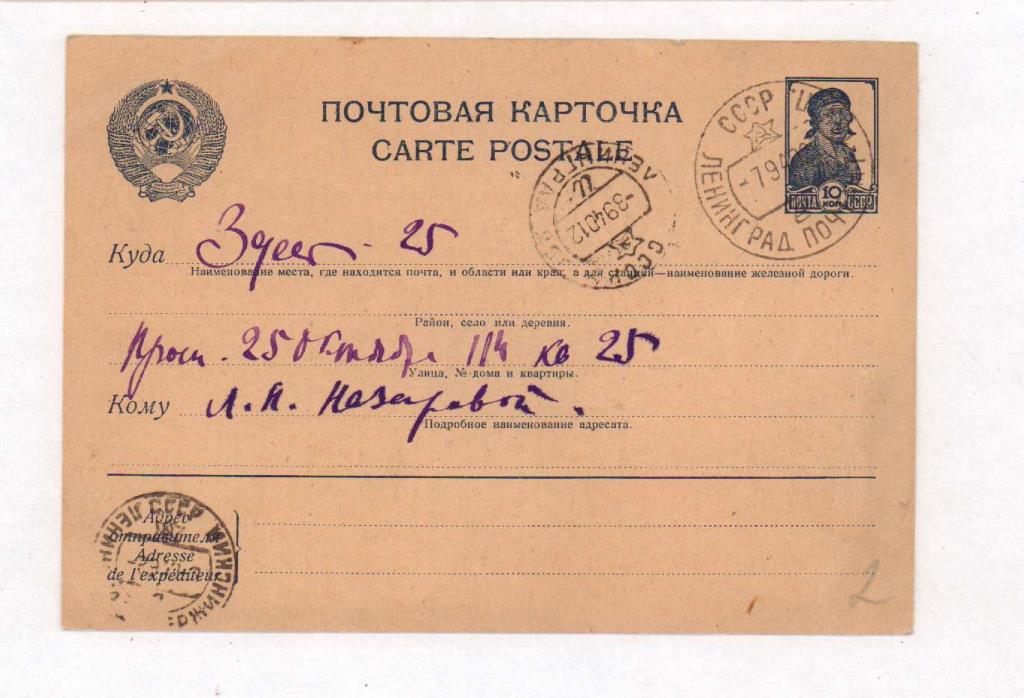 ПОЧТОВАЯ КАРТОЧКА
CARTE POSTALE
СССР
ЛЕНИНГРАД ПОЧ
-7940
10 КОП
ПОЧТА СССР
ЛЕНИНГРАД
-894012
СССР
Куда Здесь - 25
Наименование места, где находится почта, и области или края, а для станций—наименование железной дороги.
Район, село или деревня.
Просп. 25 Октября 114 кв 25
Улица, № дома и квартиры.
Кому Л.Н. Назаровой.
Подробное наименование адресата.
СССР
Адрес
отправителя
Adresse
de l'expéditeur
2